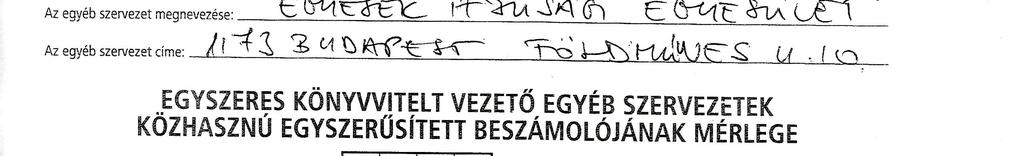 Az egyéb szervezet megnevezése: EGYESEK IFJÚSÁGI EGYESÜLET
Az egyéb szervezet címe: 1173 BUDAPEST FÖLDMŰVES U. 10
EGYSZERES KÖNYVVITELT VEZETŐ EGYÉB SZERVEZETEK
KÖZHASZNÚ EGYSZERŰSÍTETT BESZÁMOLÓJÁNAK MÉRLEGE